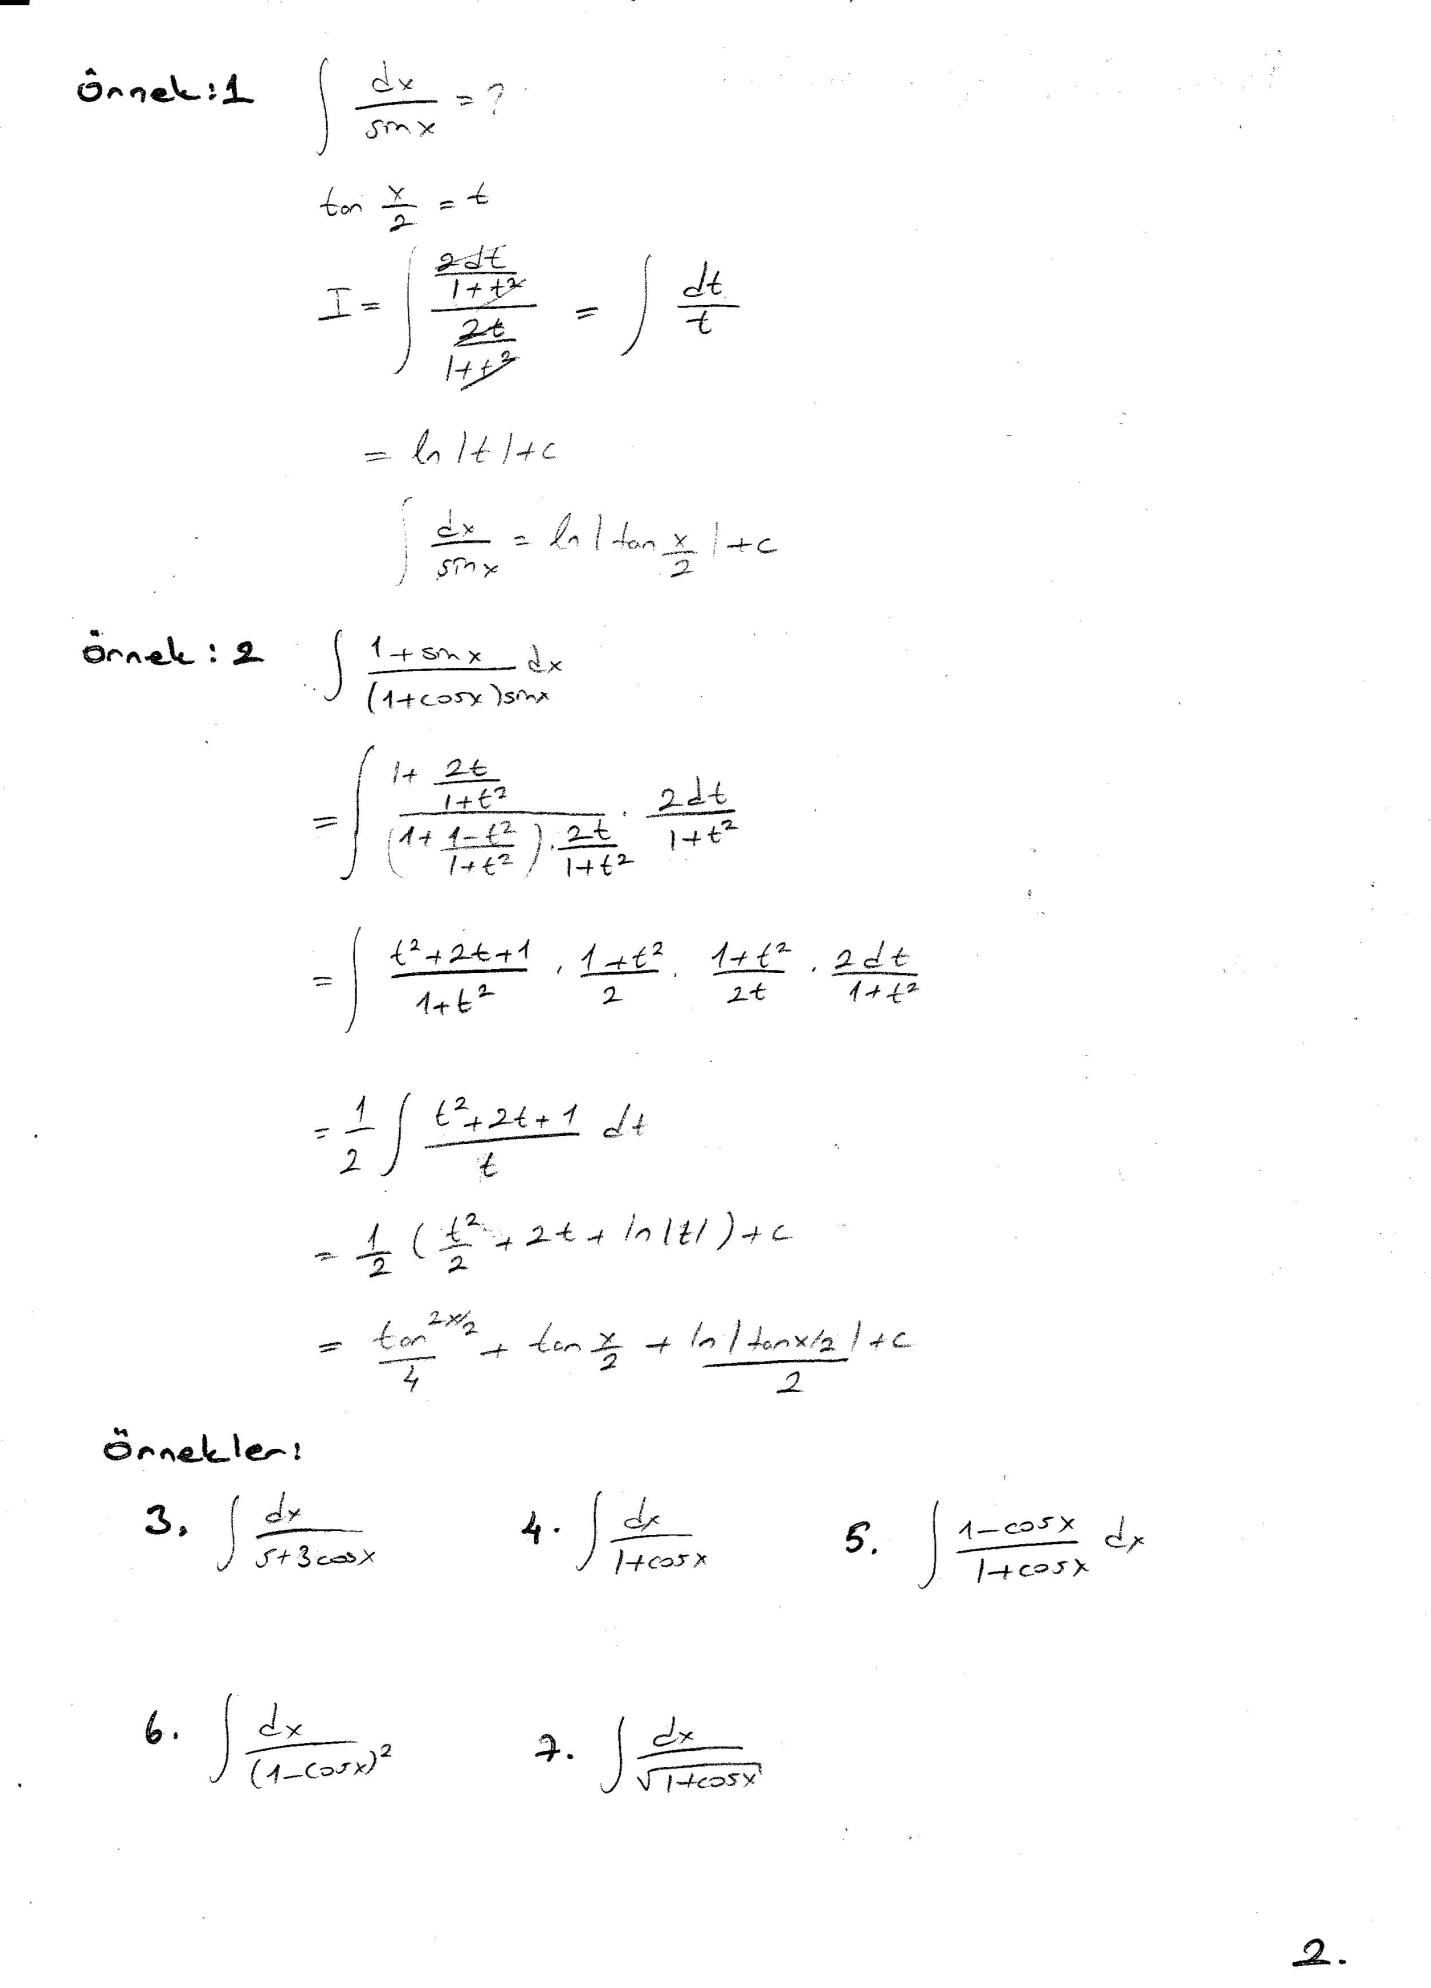 Örnek:1 ∫ dx/sinx = ?
tan x/2 = t
I = ∫ (2dt/(1+t²))/(2t/(1+t²)) = ∫ dt/t
= ln|t|+c
∫ dx/sinx = ln|tan x/2|+c
Örnek : 2 ∫ (1+sinx)/((1+cosx)sinx) dx
= ∫ (1+ 2t/(1+t²))/((1+ (1-t²)/(1+t²)) . 2t/(1+t²)) . 2dt/(1+t²)
= ∫ (t²+2t+1)/(1+t²) . (1+t²)/2 . (1+t²)/2t . 2dt/(1+t²)
= 1/2 ∫ (t²+2t+1)/t dt
= 1/2 (t²/2 + 2t + ln|t|)+c
= (tan² x/2)/4 + tan x/2 + (ln|tanx/2|)/2 +c
Örnekler:
3. ∫ dx/(5+3cosx) 4. ∫ dx/(1+cosx) 5. ∫ (1-cosx)/(1+cosx) dx
6. ∫ dx/(1-cosx)² 7. ∫ dx/√(1+cosx)
2.